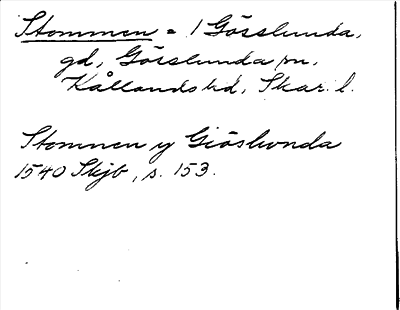 Stommen = 1 Gösslunda,
gd, Gösslunda sn,
Kållands hd, Skar. l.
Stomnen y Giöslwnda
1540 Skjb, s. 153.